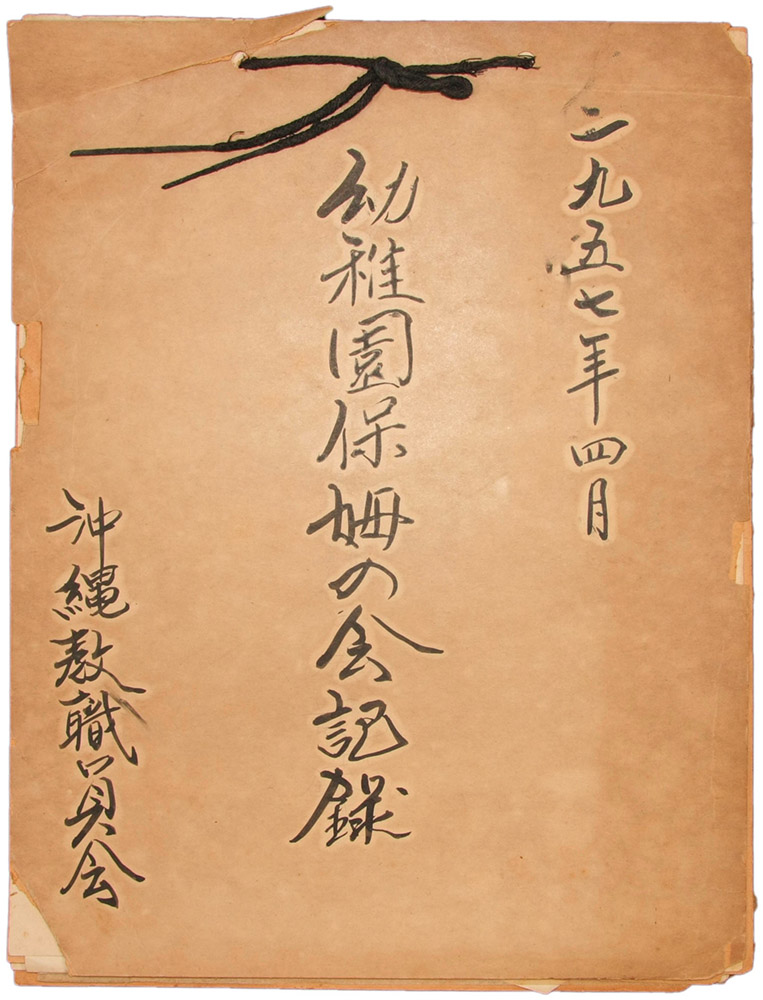 一九五七年四月
幼稚園保姆の会記録
沖縄教職員会